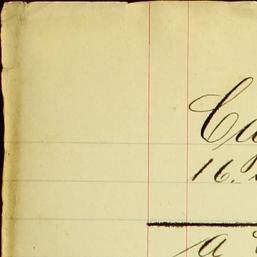 Ca
16.
a